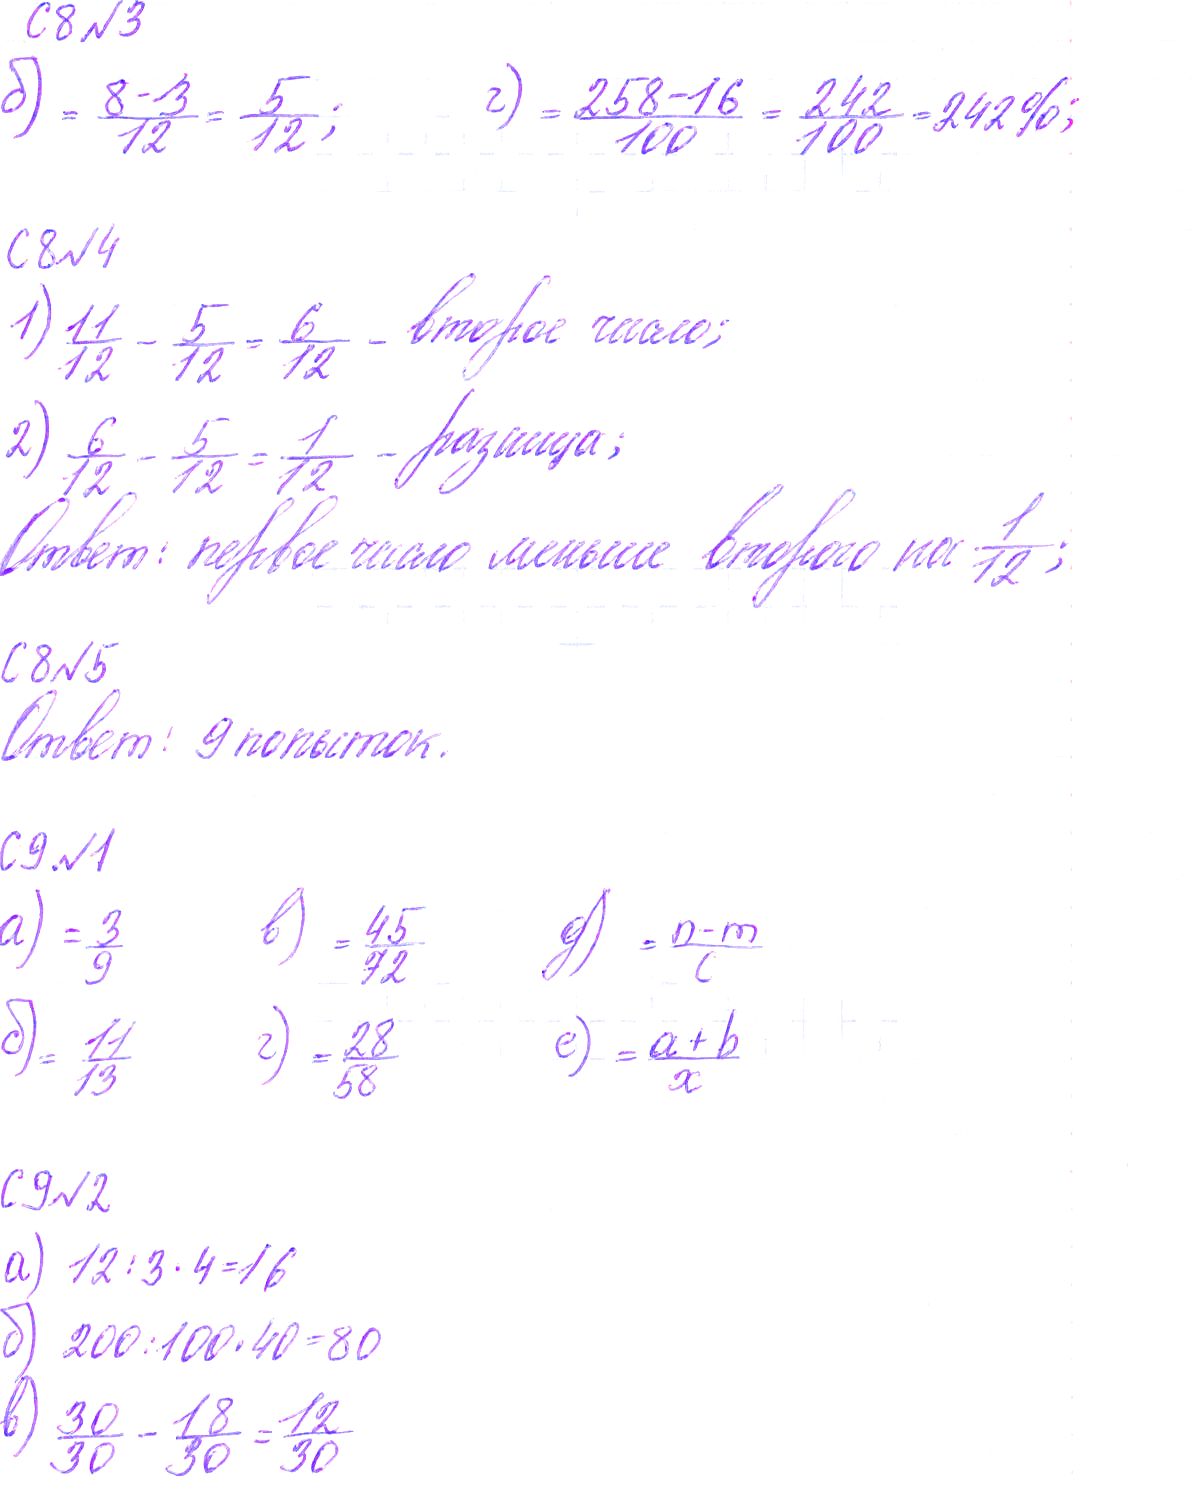 С8№3
б) = 8-3/12 = 5/12; г) = 258-16/100 = 242/100 = 242%;
С8№4
1) 11/12 - 5/12 = 6/12 - второе число;
2) 6/12 - 5/12 = 1/12 - разница;
Ответ: первое число меньше второго на 1/12;
С8№5
Ответ: 9 попыток.
С9.№1
а) = 3/9 в) = 45/72 д) = n-m/c
б) = 11/13 г) = 28/58 е) = a+b/x
С9№2
а) 12:3·4=16
б) 200:100·40=80
в) 30/30 - 18/30 = 12/30